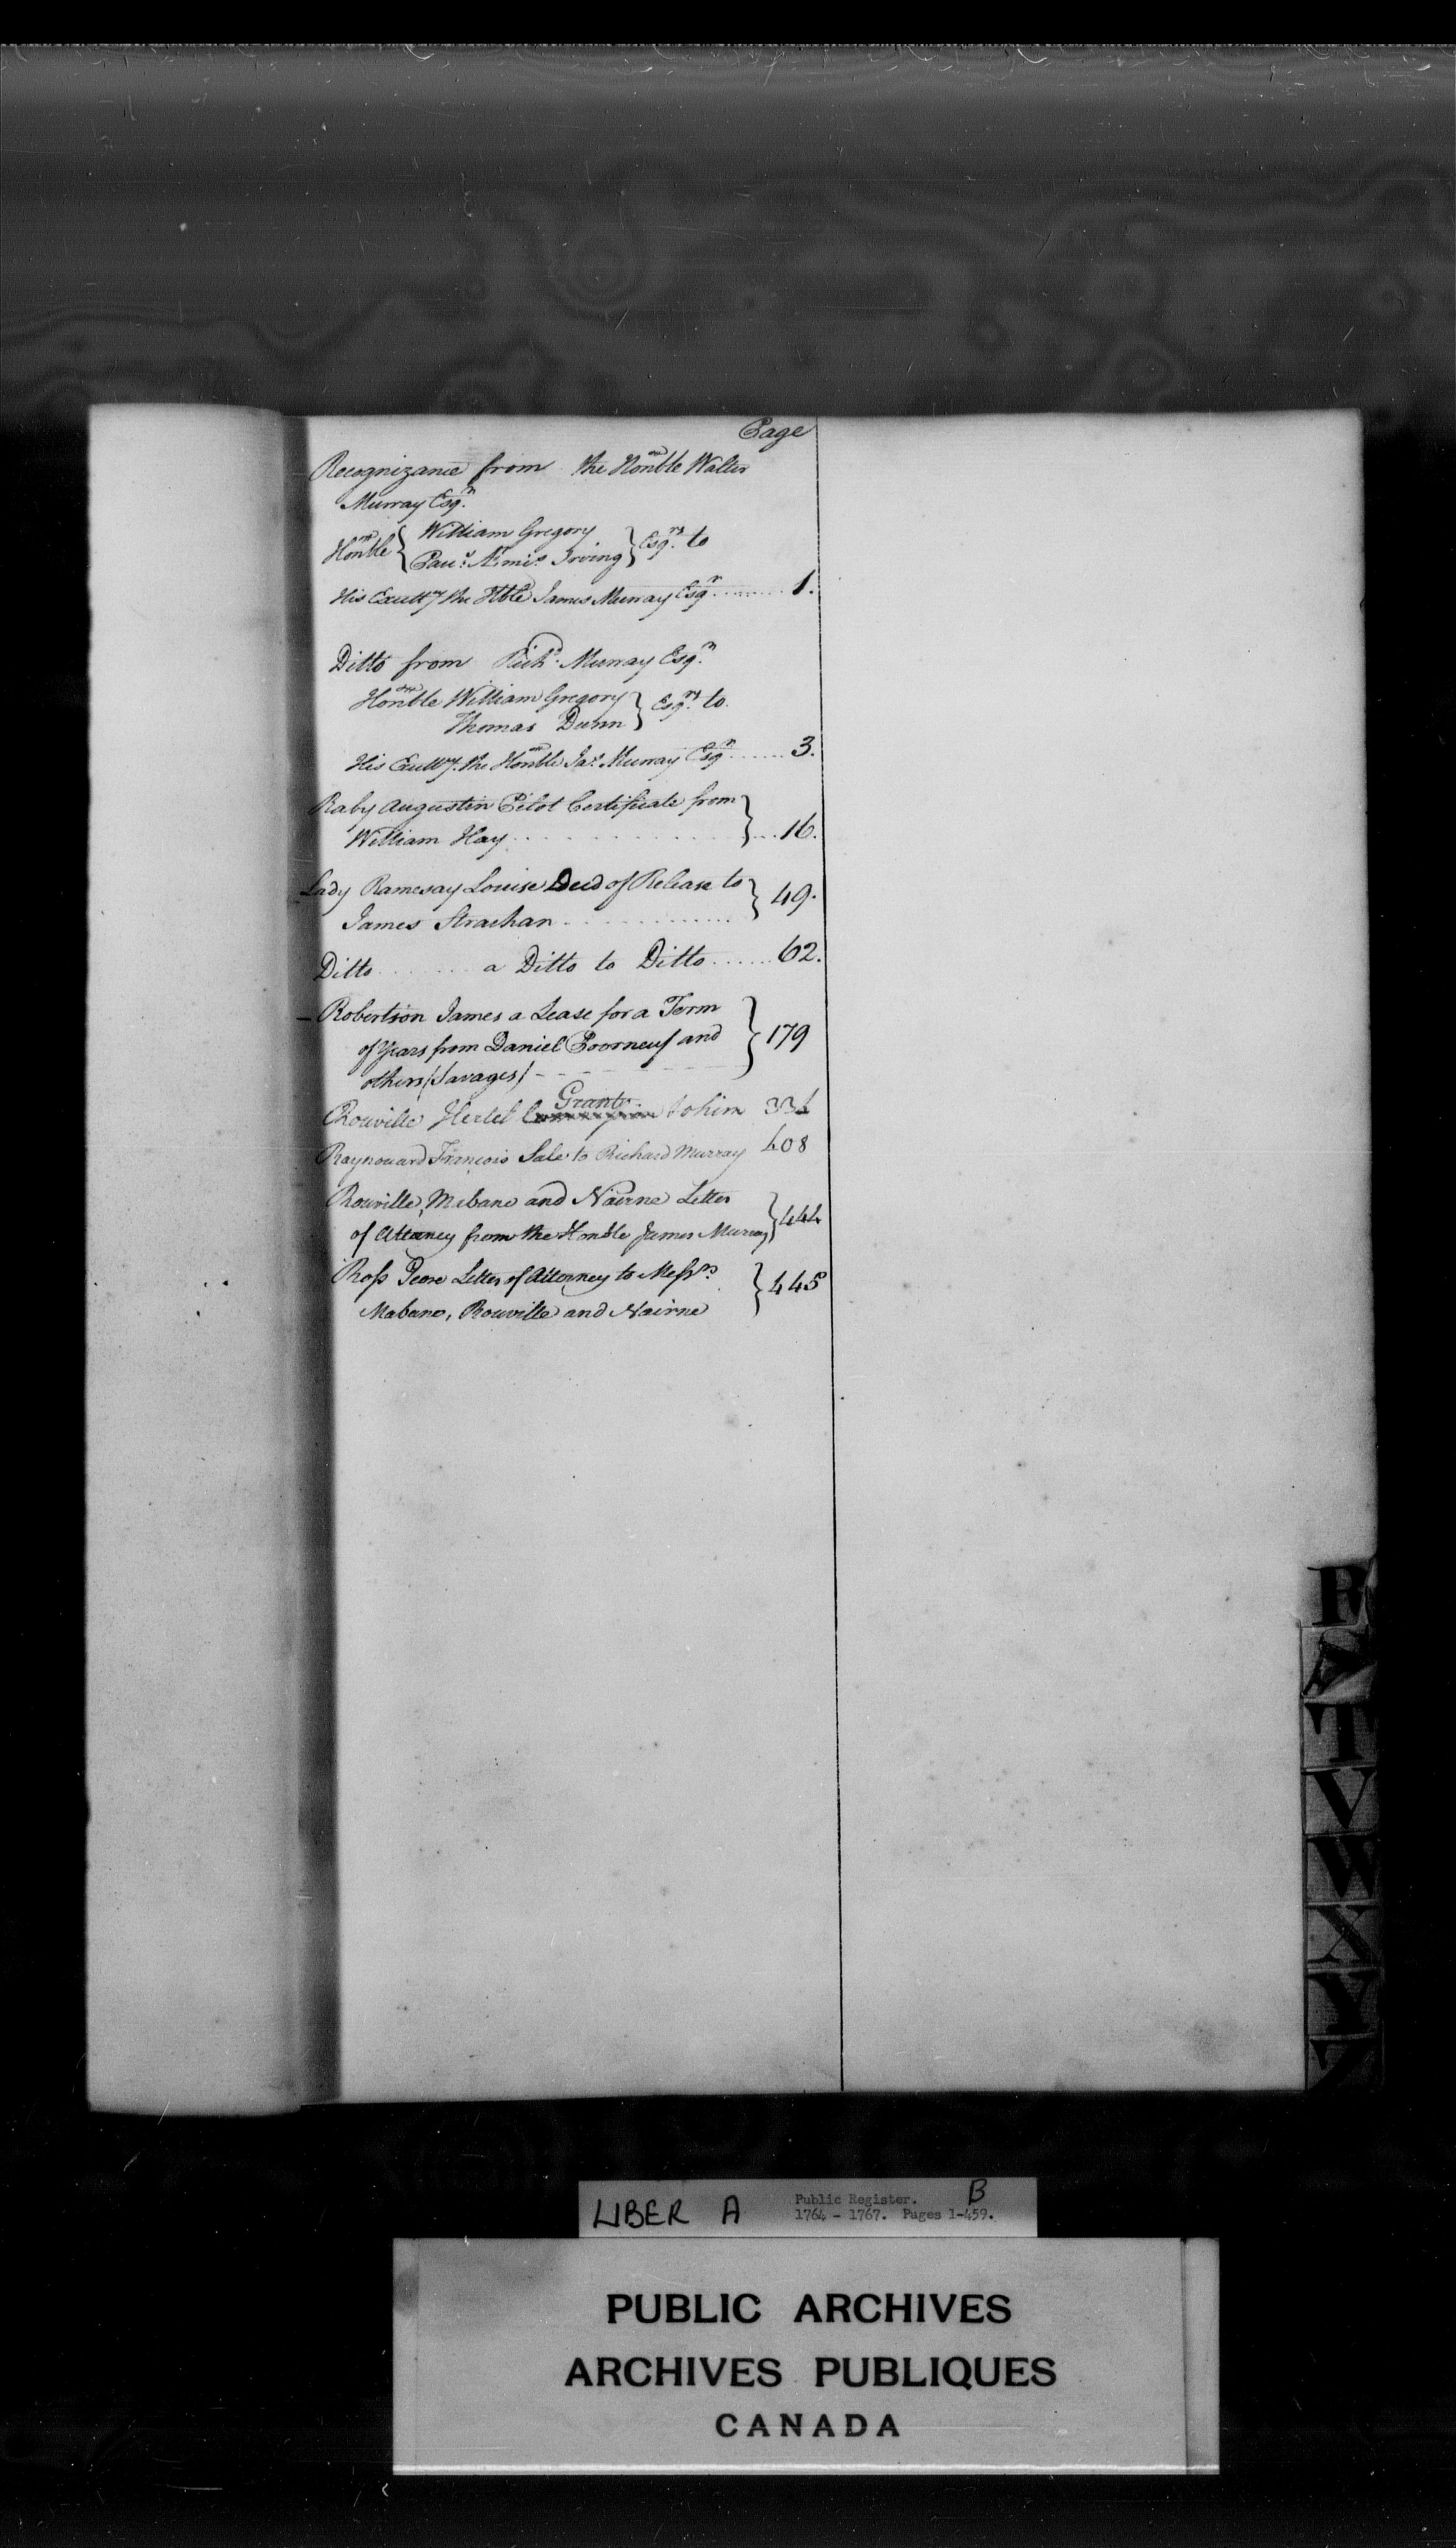 Page
Recognizance from the Honble Walter
Murray Esqr.
Honble { William Gregory
Paus. Æmis. Irving } Esqrs. to
His Excelly the Hble James Murray Esqr ........ 1.
Ditto from Richd. Murray Esqr.
Honble William Gregory
Thomas Dunn } Esqrs. to
His Excelly. the Honble Jas. Murray Esqr ...... 3.
Raby Augustin Pilot Certificate from
William Hay ........ } ... 16.
Lady Ramesay Louise Deed of Release to
James Strachan ........ } 49.
Ditto ........ a Ditto to Ditto ...... 62.
Robertson James a Lease for a Term
of Years from Daniel Poorneuf and
others (Savages) - - - - } 179
Grant
Rouville Hertel to him 334
Raynouard François Sale to Richard Murray 408
Rouville, Mabane and Nairne Letter
of Attorney from the Honble James Murray } 444
Ross Letter of Attorney to Messrs.
Mabane, Rouville and Nairne } 445
R
T
V
W
X
Y
Z
LIBER A
Public Register. B
1764 - 1767. Pages 1-459.
PUBLIC ARCHIVES
ARCHIVES PUBLIQUES
CANADA